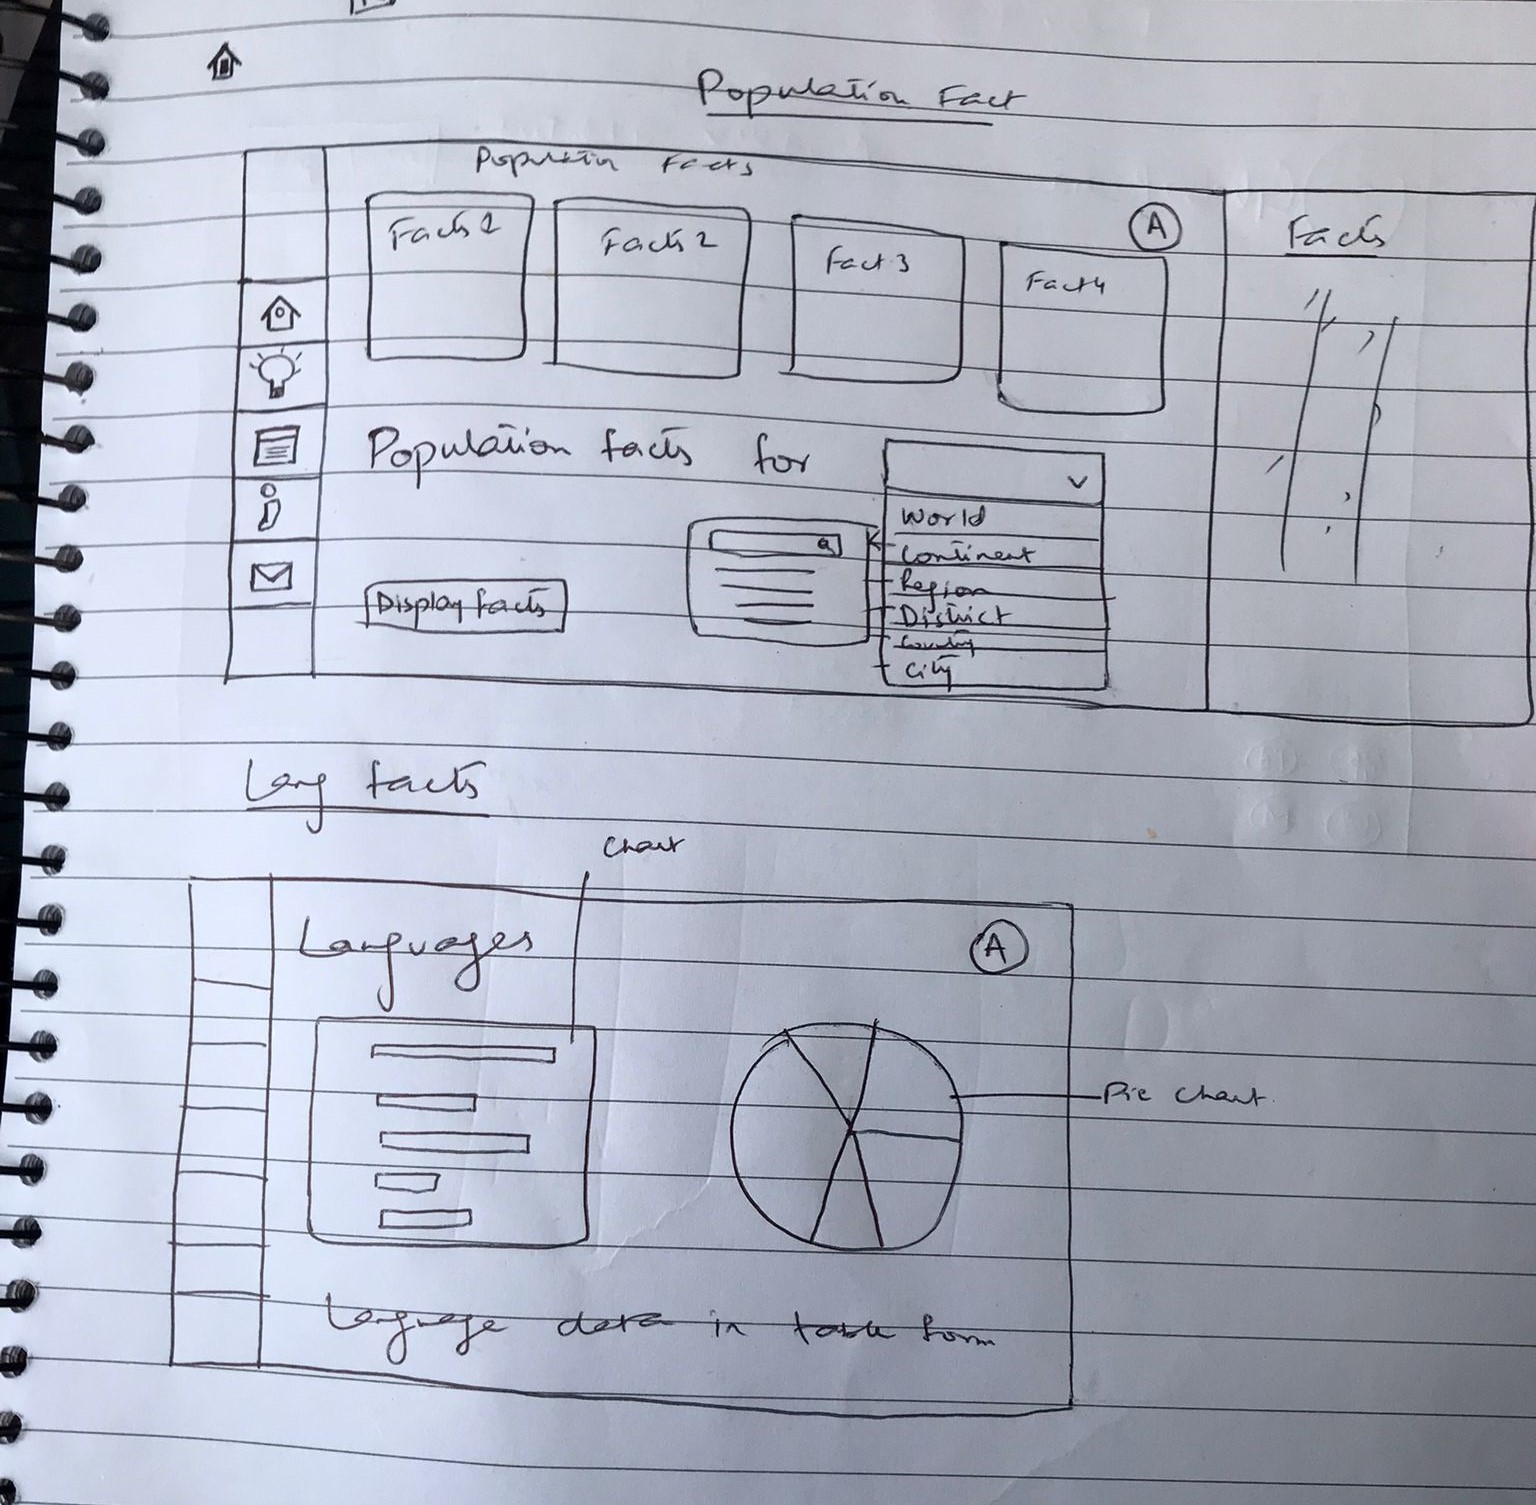 Population Fact
Population Facts
A
Facts
Facts 1
Facts 2
Fact 3
Fact 4
Population facts for
World
Continent
Region
District
Country
City
Display facts
Lang facts
Chart
Languages
A
Pie Chart
Language data in table form